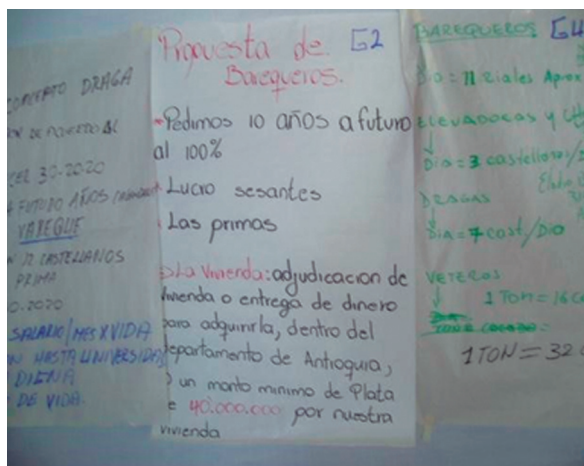 CONCEPTO DRAGA
30-2020
FUTURO AÑOS
BAREQUE
CASTELLANOS
PRIMA
2020
SALARIO/MES X VIDA
HASTA UNIVERSIDAD
DIGNA
DE VIDA.
Propuesta de G2
Barequeros.
Pedimos 10 años a futuro
al 100%
Lucro sesantes
Las primas
La vivienda: adjudicacion de
vivienda o entrega de dinero
para adquirirla, dentro del
departamento de Antioquia,
o un monto minimo de Plata
de 40.000.000 por nuestra
vivienda
BAREQUEROS G4
Dia = 11 riales Aprox
ELEVADORAS Y
Dia = 3
DRAGAS
Dia = 7 cast/Dia
VETEROS
1 Ton = 16
1 TON = 32